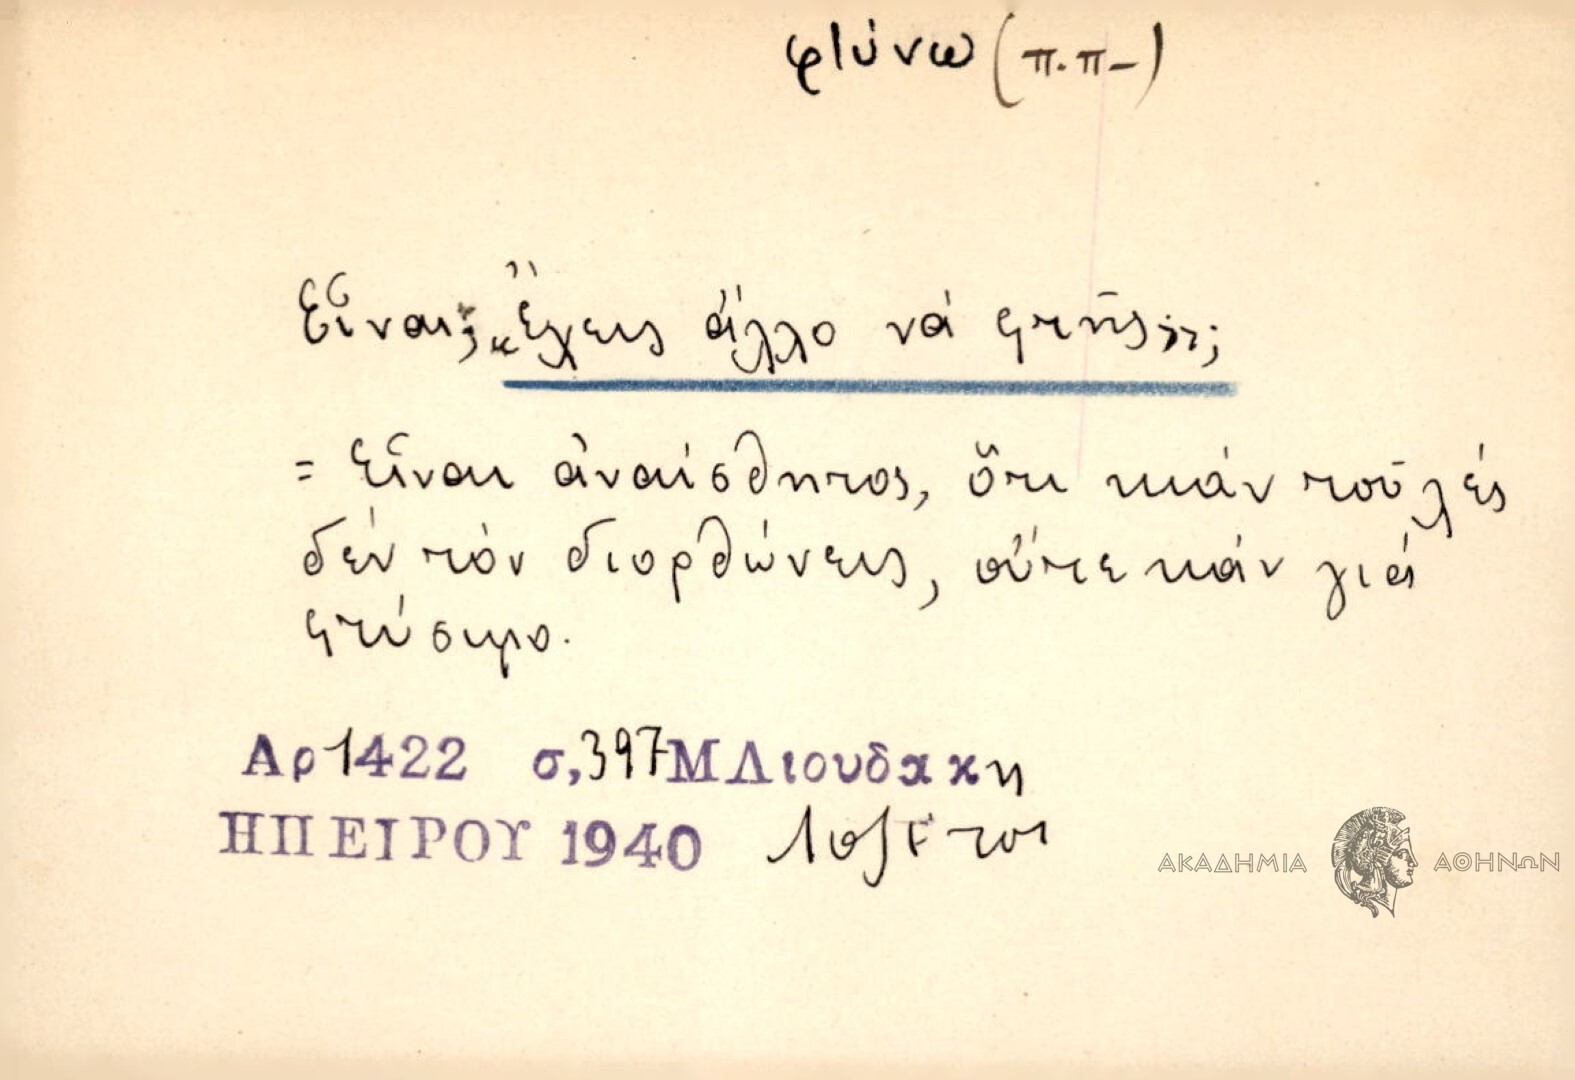 φτύνω (π.π-)
Εἶναι; „Ἔχεις ἄλλο νά φτῆς;";
= Εἶναι ἀναίσθητος, ὅτι κιάν τοῦ λές
δέν τόν διορθώνεις, οὔτε κάν γιά
φτύσιμο.
Αρ 1422 σ, 397 Μ Λιουδακη
ΗΠΕΙΡΟΥ 1940
ΑΚΑΔΗΜΙΑ ΑΘΗΝΩΝ